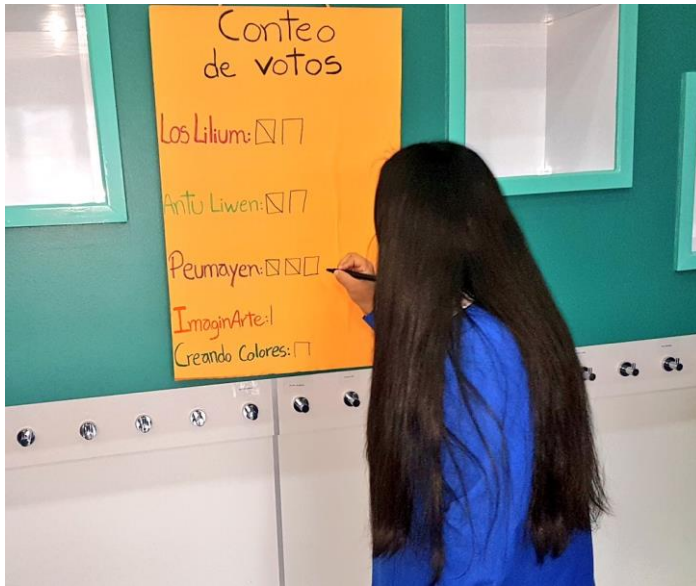 Conteo
de votos
Los Lilium:
Antu Liwen:
Peumayen:
ImaginArte:
Creando Colores: